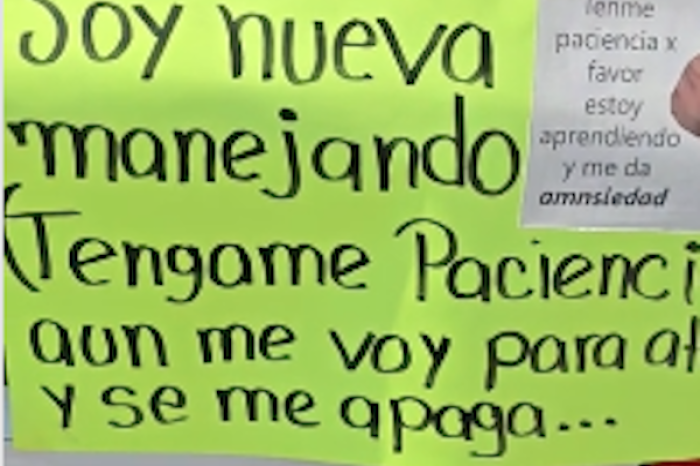 Soy nueva
manejando
(Tengame Pacienci
aun me voy para at
y se me apaga...
Tenme
paciencia x
favor
estoy
aprendiendo
y me da
amnsiedad